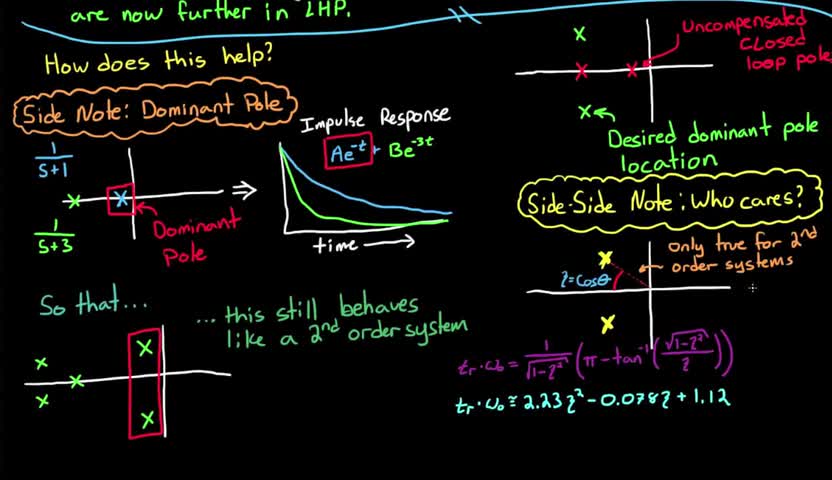 are now further in LHP.
How does this help?
Side Note: Dominant Pole
1/(S+1)
1/(S+3)
Dominant
Pole
Impulse Response
Ae^-t + Be^-3t
time
So that...
... this still behaves
like a 2nd order system
Uncompensated
closed
loop pole
Desired dominant pole
location
Side-Side Note: Who cares?
only true for 2nd
order systems
ζ=cosθ
tr·ω₀ = 1/√(1-ζ²) (π-tan⁻¹(√(1-ζ²)/ζ))
tr·ω₀ ≅ 2.23ζ² - 0.078ζ + 1.12